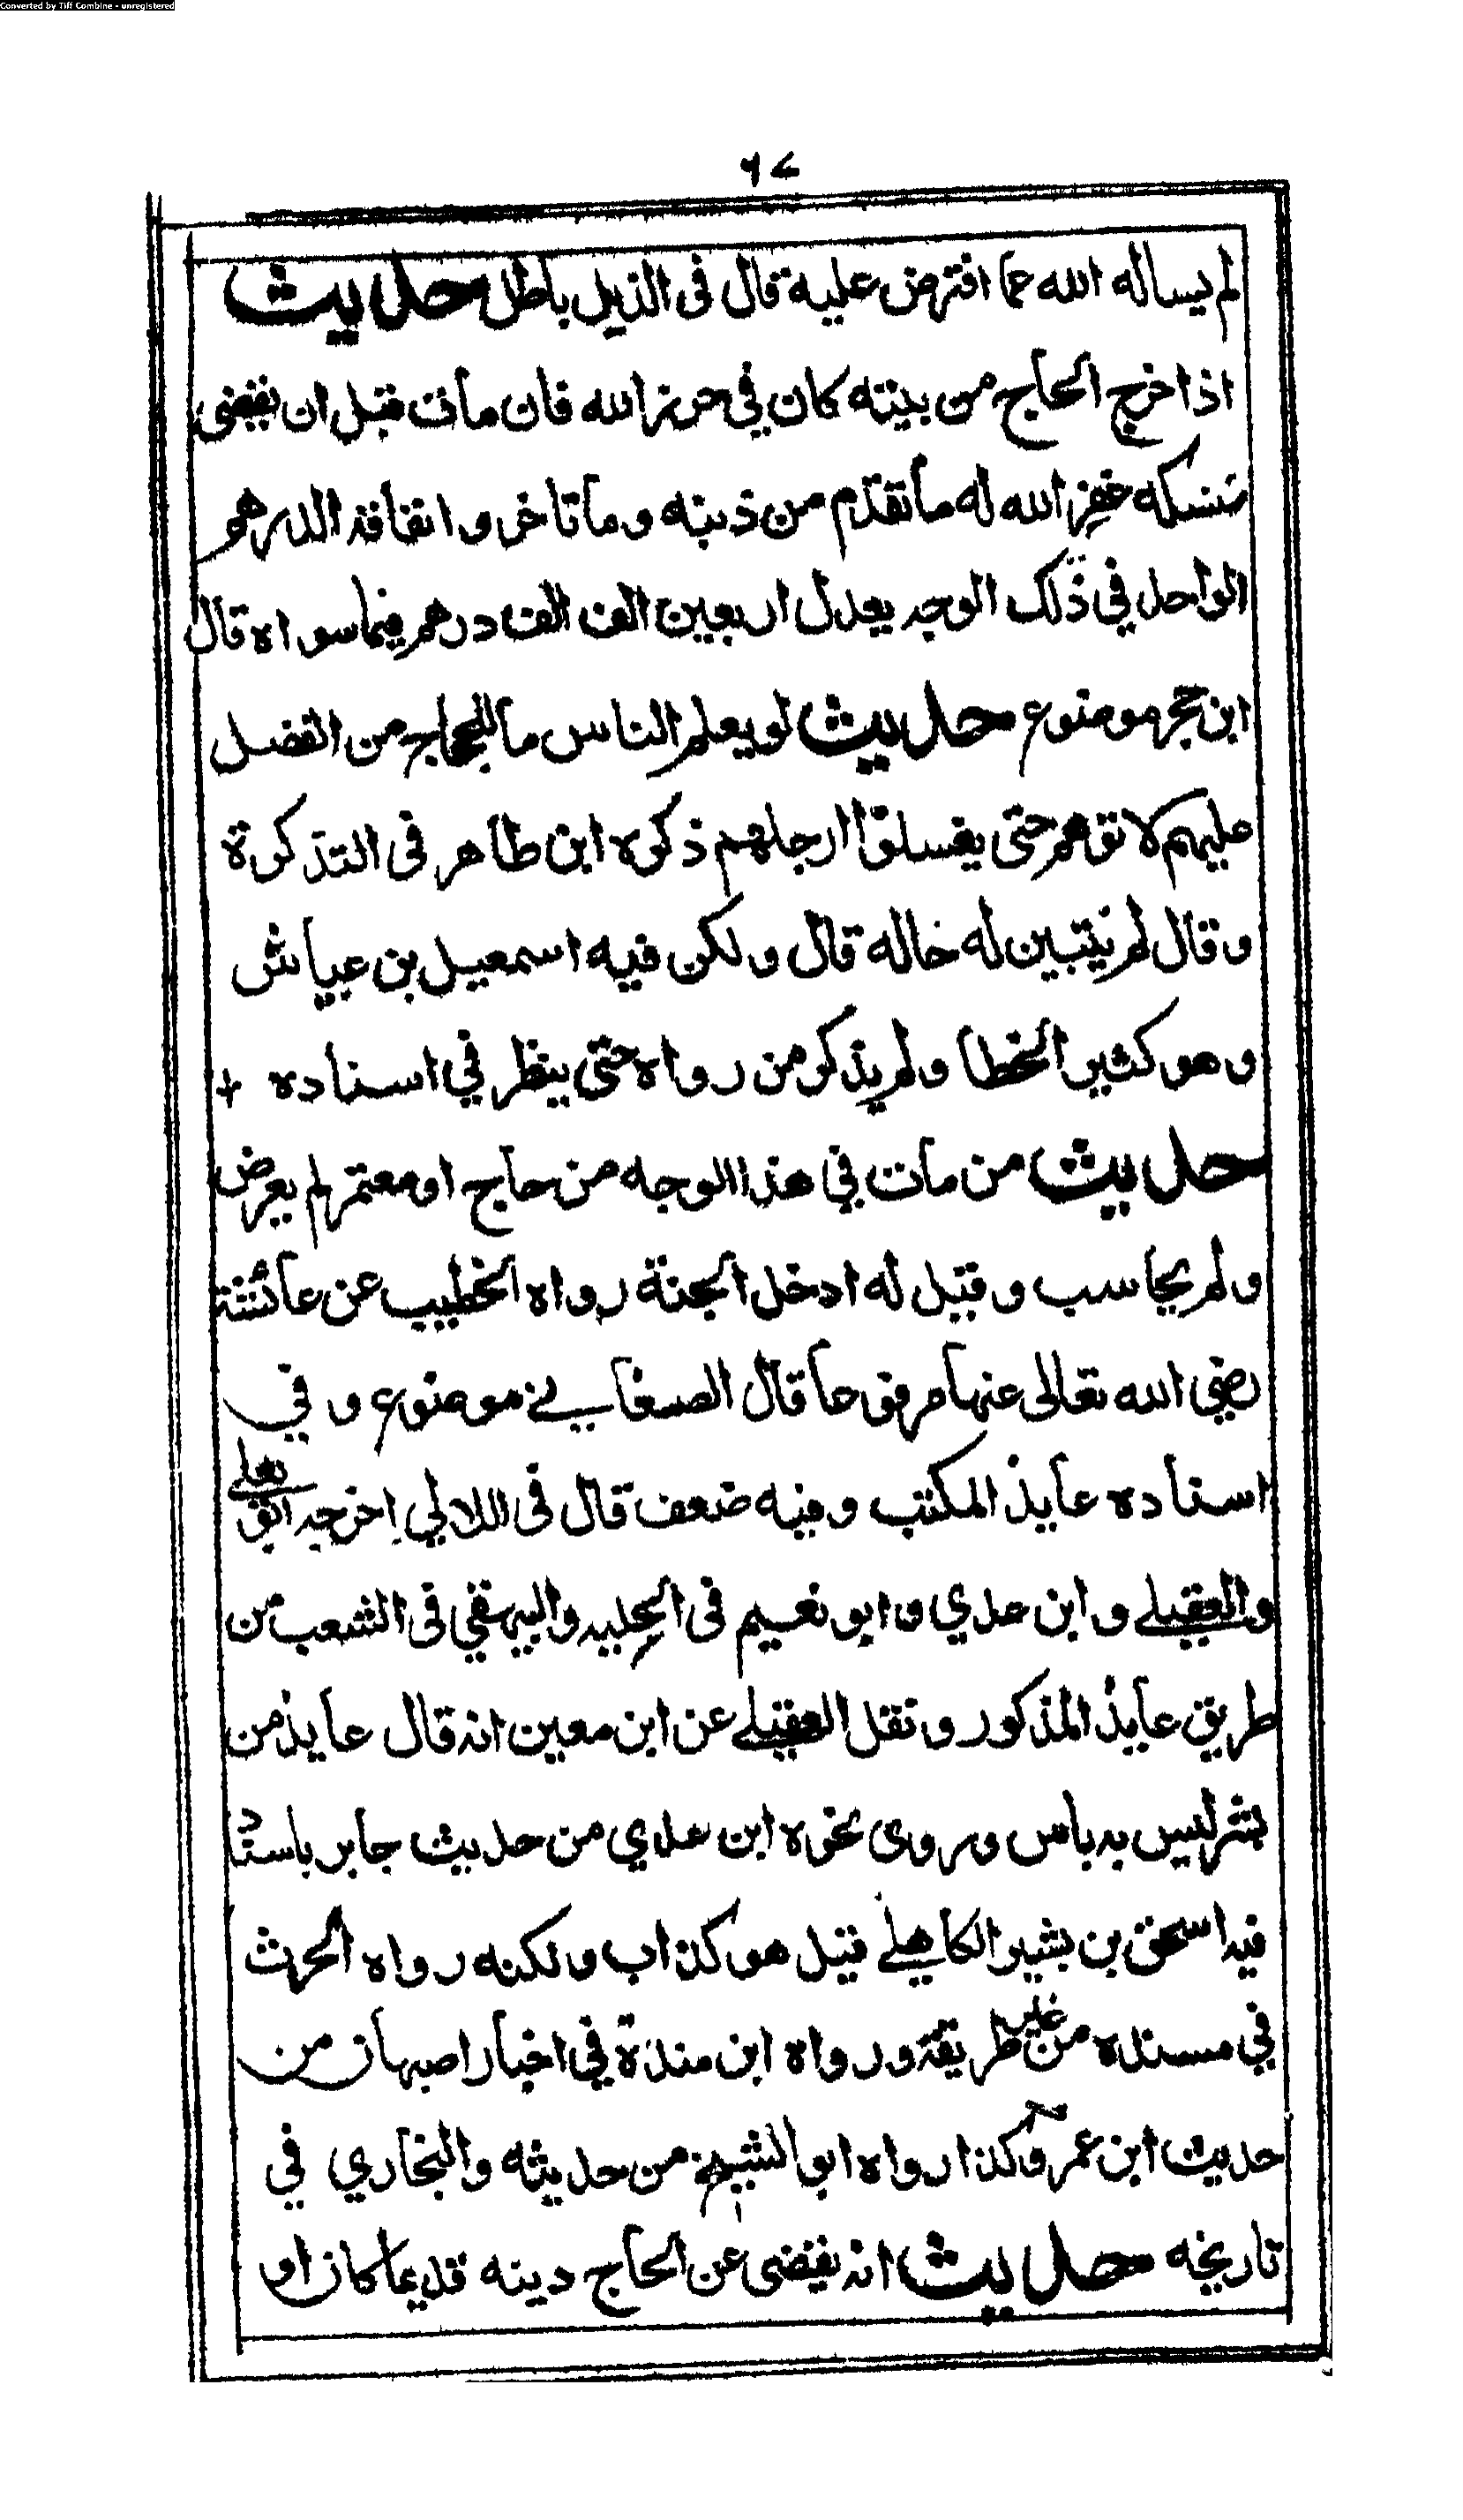 Converted by Tiff Combine - unregistered
٩٤
لم يساله الله عما افترض عليه قال فى الذيل باطل حديث
اذا خرج الحاج من بيته كان في حرز الله فان مات قبل ان يقضى
نسكه غفر الله له ما تقدم من ذنبه وما تاخر وانفاقه الدرهم
الواحد في ذلك الوجه يعدل اربعين الف الف درهم فيما سواه قال
ابن حجر موضوع حديث لو يعلم الناس ما للحجاج من الفضل
عليهم لاتوهم حتى يغسلوا ارجلهم ذكره ابن طاهر فى التذكرة
وقال لم يتبين له خاله قال ولكن فيه اسمعيل بن عياش
وهو كثير الخطا ولم يذكر من رواه حتى ينظر في اسناده +
حديث من مات في هذا الوجه من حاج او معتمر لم يعرض
ولم يحاسب وقيل له ادخل الجنة رواه الخطيب عن عائشة
رضي الله تعالى عنها مرفوعا قال الصغاني موضوع وفي
اسناده عايذ المكتب وفيه ضعف قال فى اللالي اخرجه ابو يعلے
والعقيلے وابن عدي وابو نعيم فى الحليه والبيهقي فى الشعب من
طريق عايذ المذكور ونقل العقيلے عن ابن معين انه قال عايذ من
بشر ليس به باس وروى نحوه ابن عدي من حديث جابر باسناد
فيه اسحق بن بشير الكاهلے قيل هو كذاب ولكنه رواه الحرث
في مسنده من غير طريقه ورواه ابن مندة في اخبار اصبهان من
حديث ابن عمر وكذا رواه ابو الشيخ من حديثه والبخاري في
تاريخه حديث انه يقضى عن الحاج دينه قديما كان او